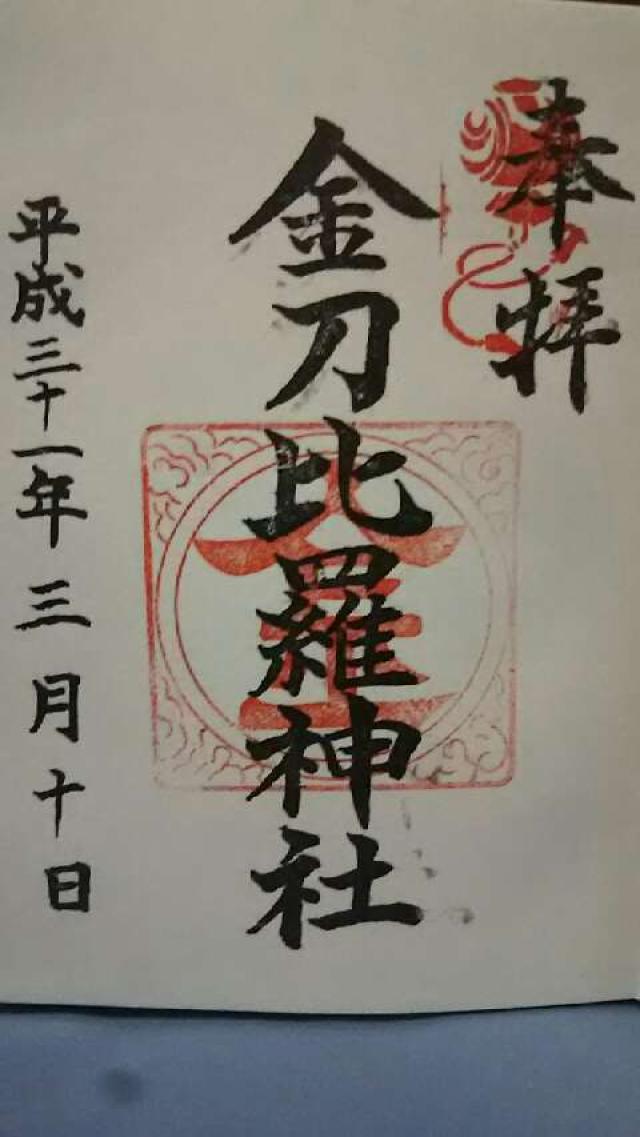 奉拝
金刀比羅神社
平成三十一年三月十日